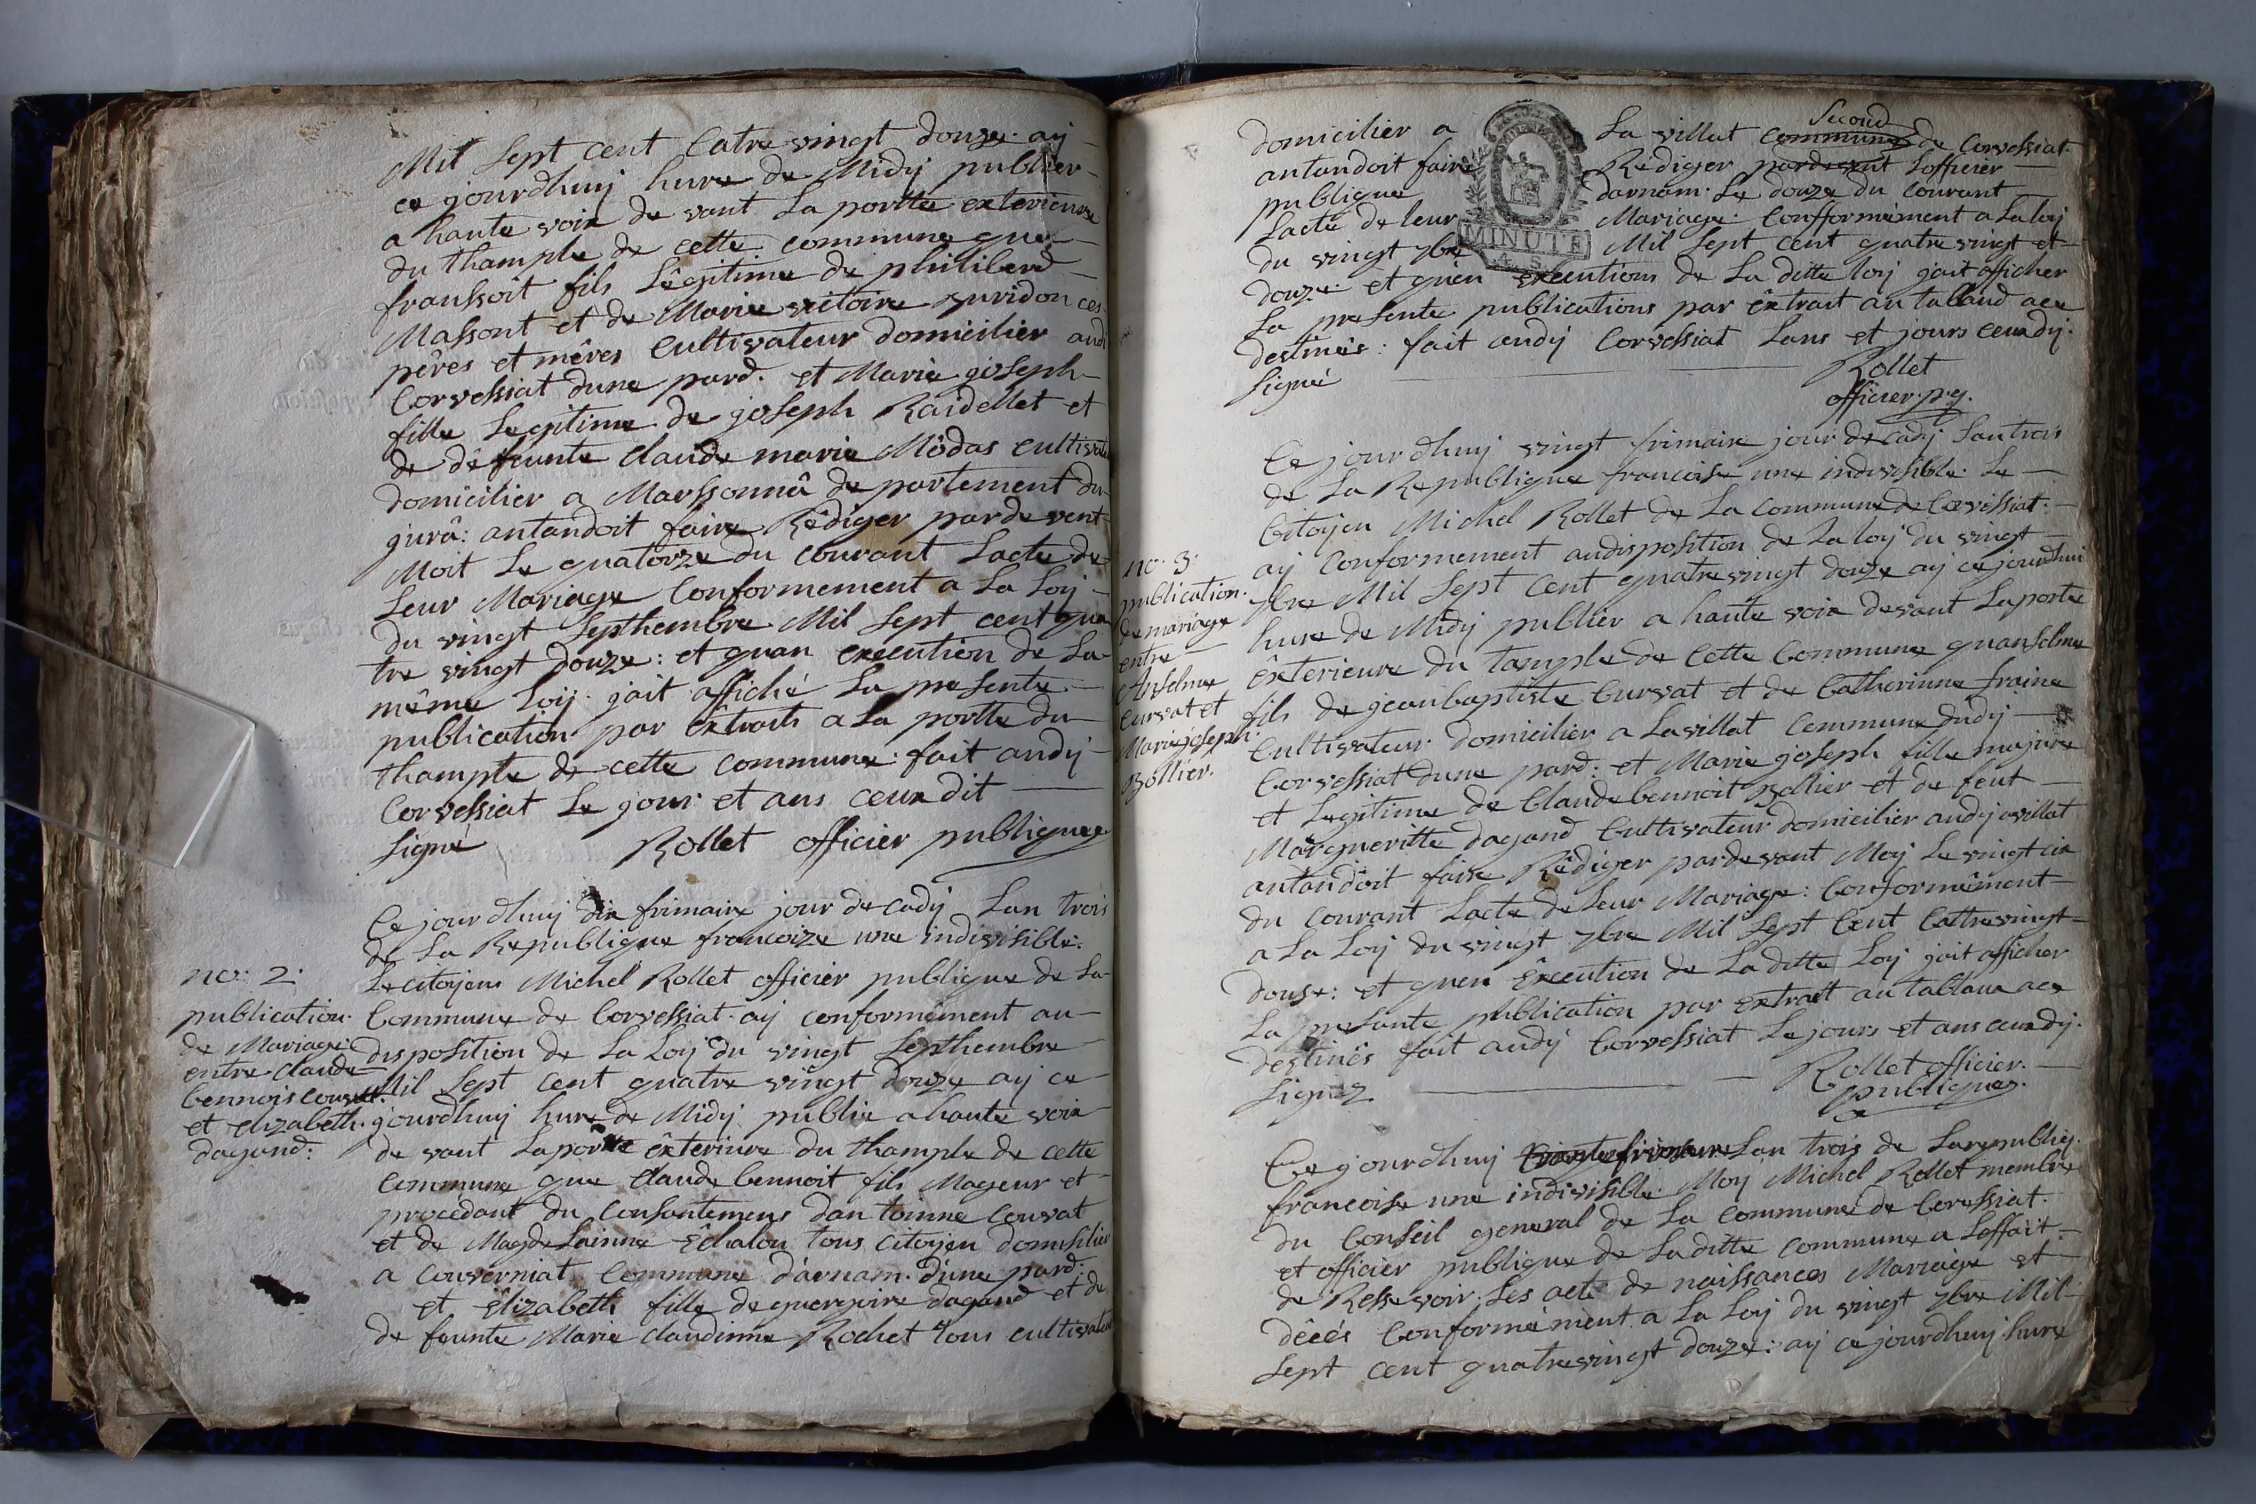 Mil Sept cent Catre vingt douze. aij
ce jourdhuij hure de Midij publier
a haute voix de vant La portte exterieure
du thample de cette commune que
franssoit fils Légitime de philiberd
Massont et de Marie victoire guridon ces
pêres et mêres Cultivateur domicilier audi
Corvessiat dune pard. et Marie joseph
fille Legitime de joseph Raidellet et
de défeunte claude marie Môdas cultivate
domicilier a Marssonnâ de partement du
jurâ: antandoit faire Rêdiger parde vent
Moit Le quatorze du courant Lacte de
Leur Mariage Conformement a La Loij
du vingt Septhembre Mil Sept cent qua
tre vingt douze: et quan execution de La
même Loij. jait affiché La presente
publication par êxtraits a La portte du
thample de cette commune: fait audij
Corvessiat Le jour et ans ceux dit
Signé Rollet officier publique
Ce jour dhuij dix frimaire jour de cadij Lan trois
de La Republique francoize une indivisible:
no: 2:
Le citoijens Michel Rollet officier publique de La
publication.
Commune de Corvessiat. aij conformément au
de Mariage:
disposition de La Loij du vingt Septhembre
entre claude
Mil Sept cent quatre vingt douze aij ce
bennois couvat.
et elizabeth.
jourdhuij hure de Midij publie a haute voix
dagand:
de vant La portte êxterieure du thample de cette
Commune que Claude bennoit fils Mageur et
procèdant du Consantemens dan toinne couvat
et de Magdelainne Echalon tous citoijen domisilier
a Couverniat Commune d'arnam. d'une pard:
et Elizabeth fille de guergoire dagand et de
de feunte Marie claudinne Rochet tous cultivateur
domicilier a La villat commune Second de Corvessiat
antandoit faire Rêdiger pardevant Lofficier
publique darnam. Le douze du Courant
Lacte de leur Mariage: Confformément a La loij
MINUTE
du vingt 7bre Mil Sept cent quatre vingt et
douze: et quen êxecutions de La ditte loij jait afficher
La presente publications par êxtrait au tallaud ace
destinés: fait audij Corvessiat Lans et jours ceuxdij.
Signé Rollet
officier. p.q.
Ce jour dhuij vingt frimaire jour de cadij Lan trois
de La Republique francoise une indivisible. Le
Citoijen Michel Rollet de La Commune de Corvessiat:
no. 3.
aij Conformement audisposition de La loij du vingt
publication.
7bre Mil Sept Cent quatre vingt douze aij ce jourdhui
de mariage
hure de Midij publier a haute voix devant Laporte
entre
êxterieure du tample de Cette Commune quanselme
Anselme
fils de jeanbaptiste Curvat et de Catherinne fraine
Curvat et
Cultivateur domicilier a Lavillat Commune dudij
Marie joseph.
Corvessiat dune pard: et Marie joseph fille majure
Bollier.
et Legitime de Claude bennoit Bollier et de feut
Margueritte dagand Cultivateur domicilier audij avillat
antandoit faire Rêdiger pardevant Moij Le vingt cix
du Courant Lacte de Leur Mariage: Conformément
a La Loij du vingt 7bre Mil Sept Cent Cattre vingt
douse: et quen êxecution de La ditte Loij jait afficher
La presante publication par extrait au tablaux ace
destinês fait audij Corvessiat Le jours et ans ceuxdij.
Signez Rollet officier.
publique.
Ce jourdhuij trante frimaire Lan trois de Larepubliq.
francoise une indivisible. Moij Michel Rollet membre
du Conseil general de La Commune de Corvessiat.
et officier publique de La ditte Commune a Leffait
de Ressevoir. Les acte de naissances Mariage et
dêcés Conformément a La Loij du vingt 7bre Mil
Sept cent quatre vingt douze: aij ce jourdhuij. hure